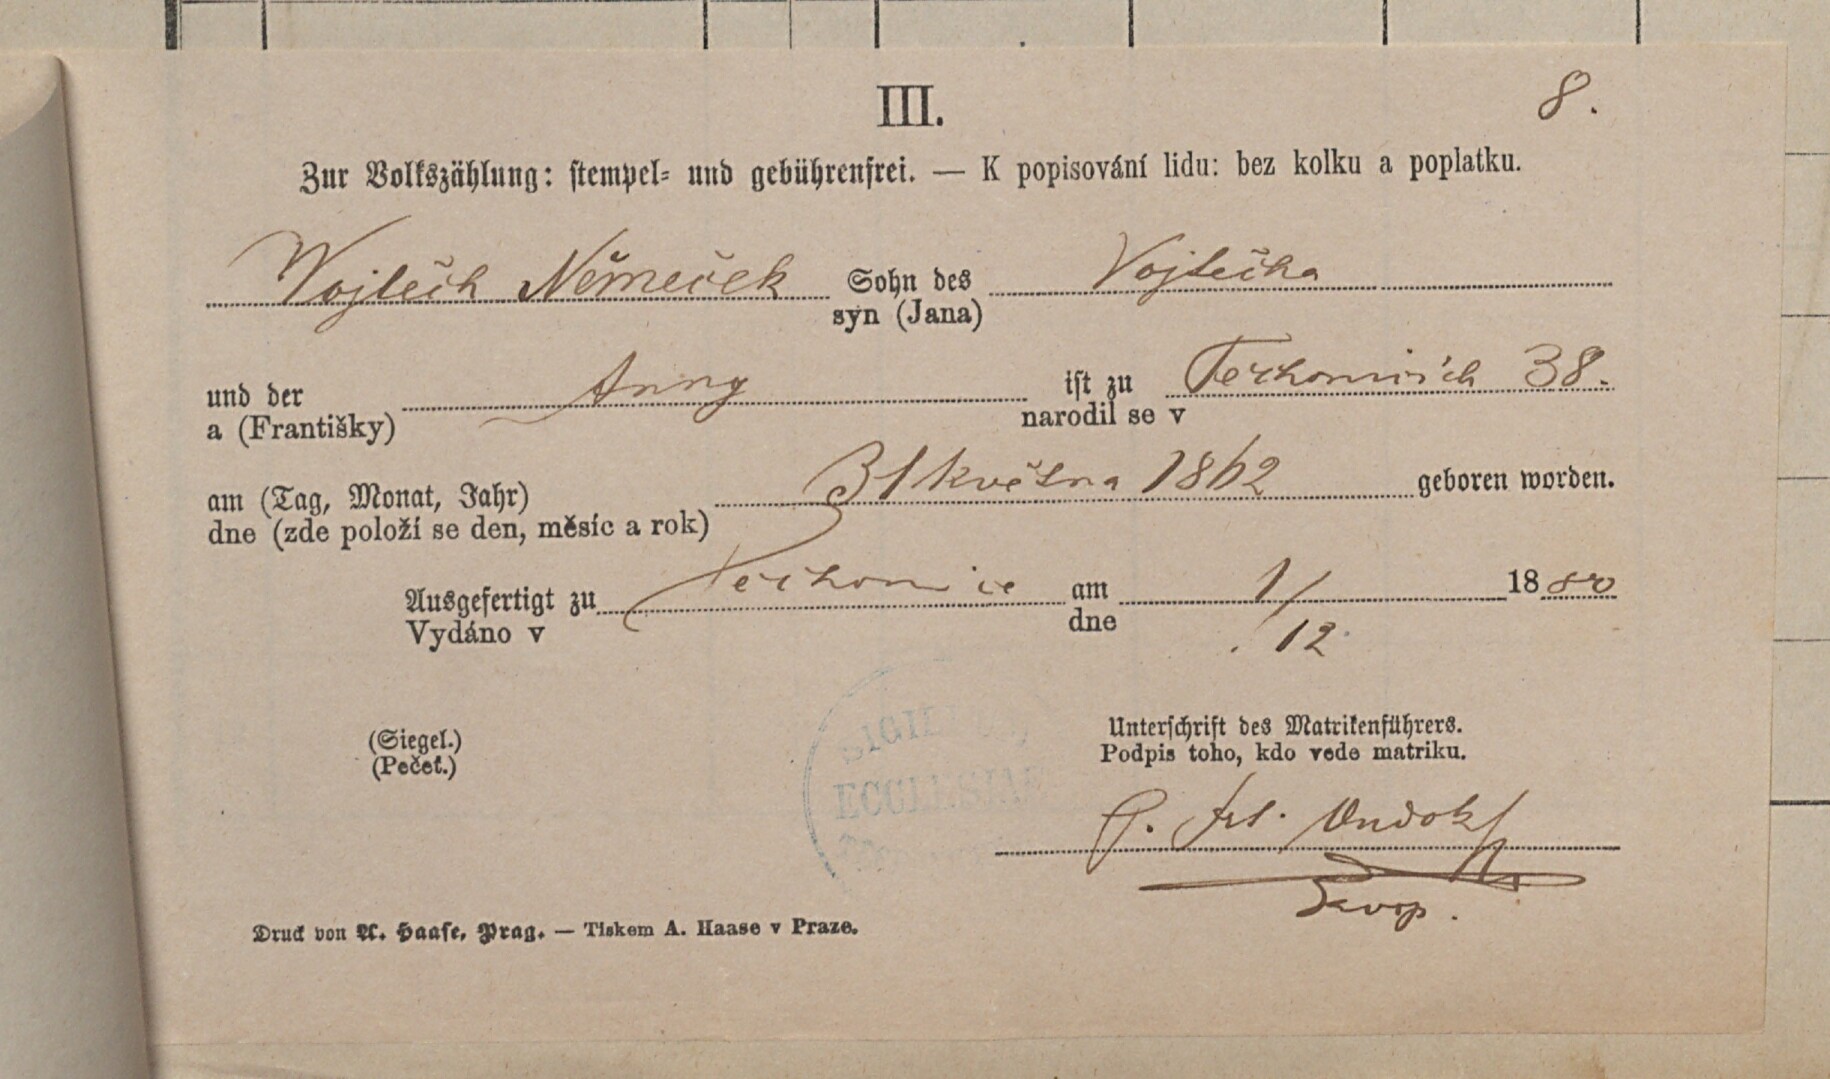 III.
8.
Zur Volkszählung: stempel- und gebührenfrei. — K popisování lidu: bez kolku a poplatku.
Vojtěch Němeček Sohn des Vojtěcha
syn (Jana)
und der Anny ist zu Techonicích 38.
a (Františky) narodil se v
am (Tag, Monat, Jahr) 31 května 1862 geboren worden.
dne (zde položí se den, měsíc a rok)
Ausgefertigt zu Techonice am 1/12 1880
Vydáno v dne
SIGIL
ECCLESIAE
(Siegel.)
(Pečeť.)
Unterschrift des Matrikenführers.
Podpis toho, kdo vede matriku.
P. Frt.
Druck von A. Haase, Prag. — Tiskem A. Haase v Praze.